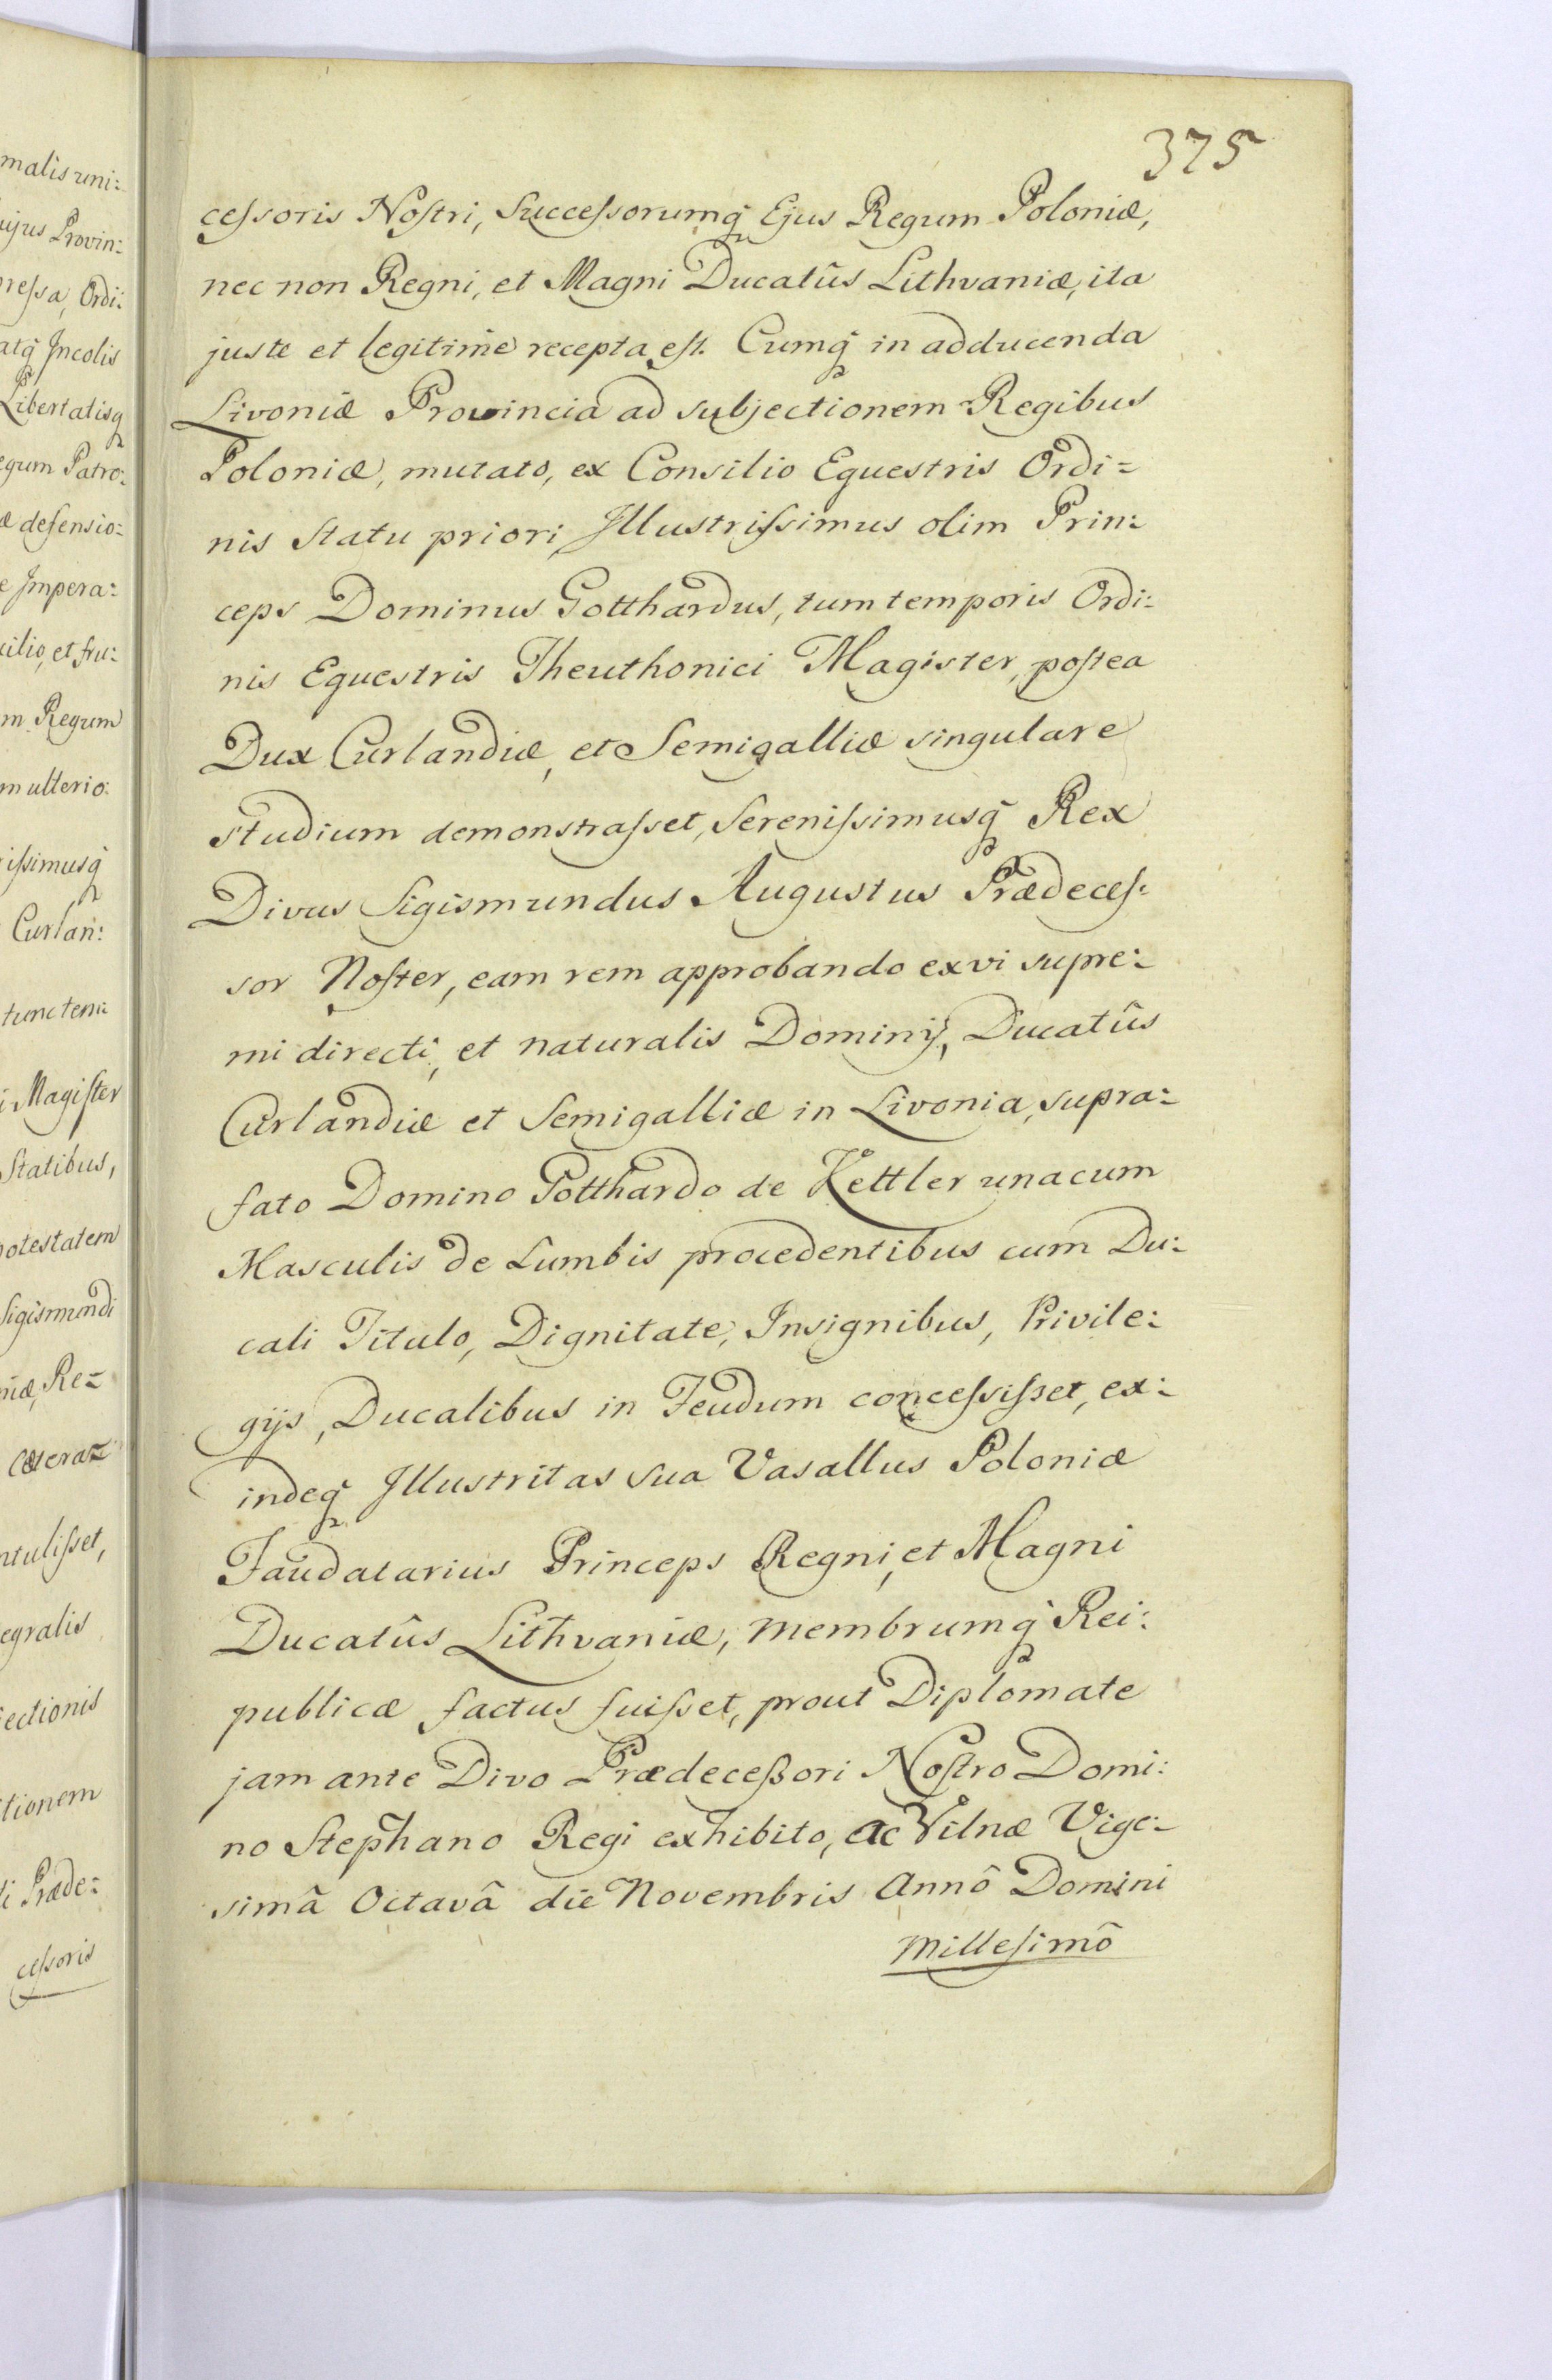 375
cessoris Nostri, Successorumq̃ Ejus Regum Poloniæ,
nec non Regni, et Magni Ducatûs Lithvaniæ, ita
juste et legitime recepta est. Cumq̃ in adducenda
Livoniæ Provincia ad subjectionem Regibus
Poloniæ, mutato, ex Consilio Equestris Ordi=
nis Statu priori, Illustrissimus olim Prin:
ceps Dominus Gotthardus, tum temporis Ordi:
nis Equestris Theuthonici Magister, postea
Dux Curlandiæ, et Semigalliæ singulare
studium demonstrasset, Serenissimusq̃ Rex
Divus Sigismundus Augustus Prædeces:
sor Noster, eam rem approbando ex vi supre:
mi directi, et naturalis Dominij, Ducatûs
Curlandiæ et Semigalliæ in Livonia, supra:
fato Domino Gotthardo de Kettler unacum
Masculis de Lumbis procedentibus cum Du:
cali Titulo, Dignitate, Insignibus, Privile:
gijs, Ducalibus in Feudum concessisset, ex:
indeq̃ Illustritas sua Vasallus Poloniæ
Faudatarius Princeps Regni, et Magni
Ducatûs Lithvaniæ, membrumq̃ Rei:
publicæ factus fuisset, prout Diplomate
jam ante Divo Prædeceßori Nostro Domi:
no Stephano Regi exhibito, ac Vilnæ Vige:
simâ Octavâ die Novembris Annô Domini
Millesimô
malis uni:
ujus Provin:
messa, Ordi:
atq̃ Incolis
Libertatisq̃
egum Patro:
æ defensio:
e Impera:
uilio, et fru:
m Regum
m ulterio:
issimusq̃
Curlan:
tunc tem:
i Magister
Statibus,
potestatem
Sigismundi
niæ, Re=
cætera=
ntulisset,
egralis
jectionis
tionem
i Præde:
cessoris